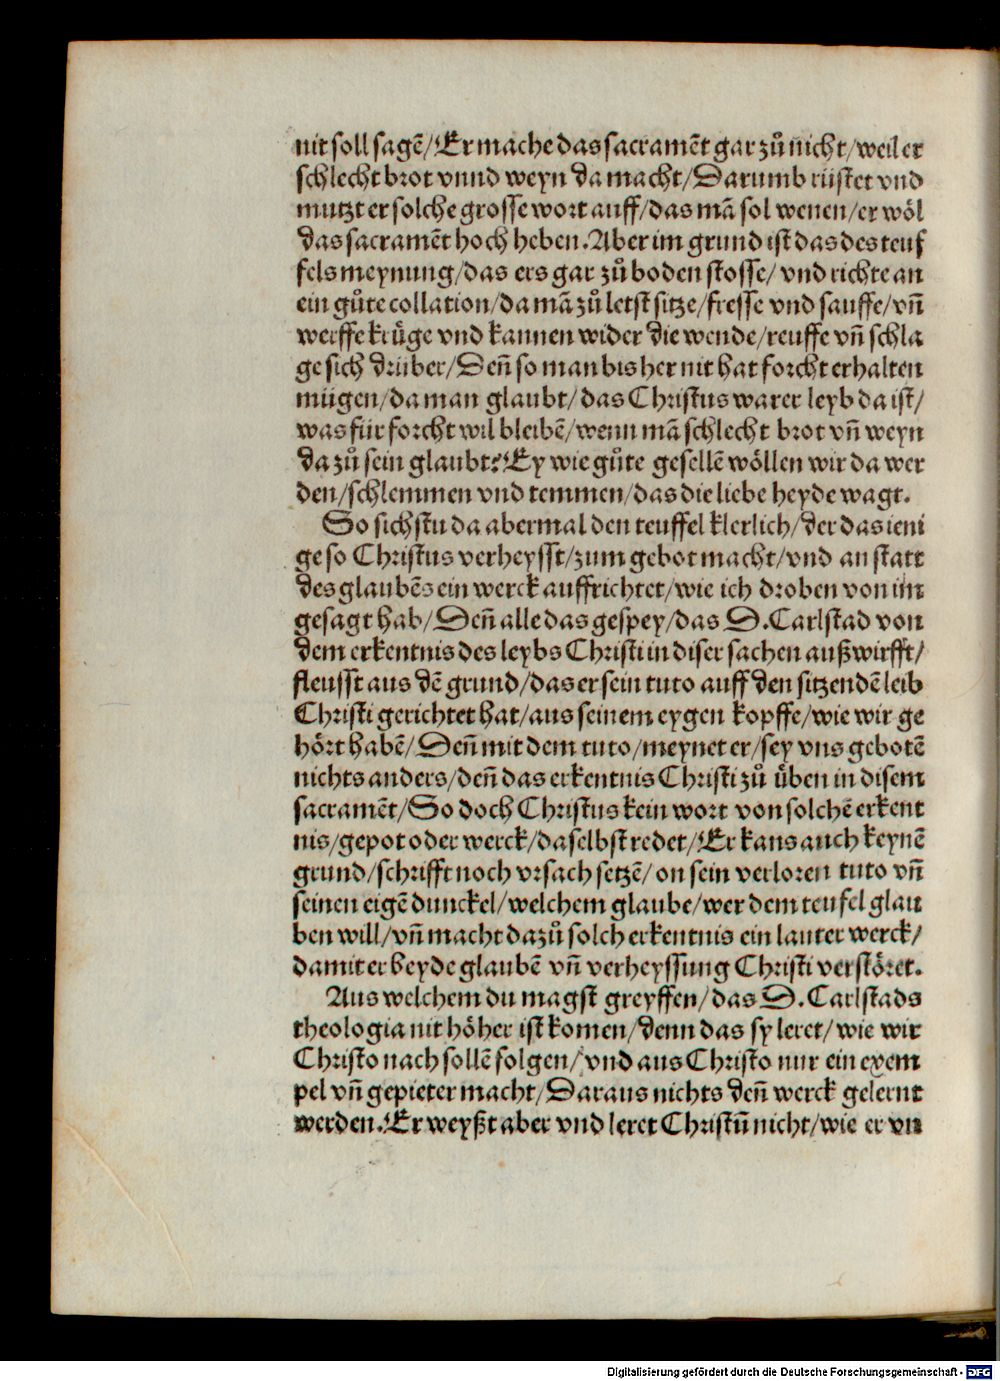 nit soll sagẽ/Er mache das sacramẽt gar zů nicht/weil er
schlecht brot vnnd weyn da macht/Darumb rüstet vnd
mutzt er solche grosse wort auff/das mã sol wenen/er wöl
das sacramẽt hoch heben.Aber im grund ist das des teuf
fels meynung/das ers gar zů boden stosse/ vnd richte an
ein gůte collation/da mã zů letst sitze/fresse vnd sauffe/vñ
werffe krüge vnd kannen wider die wende/reuffe vñ schla
ge sich drüber/Deñ so man bis her nit hat forcht erhalten
mügen/da man glaubt/das Christus warer leyb da ist/
was für forcht wil bleibẽ/wenn mã schlecht brot vñ weyn
da zů sein glaubt?Ey wie gůte gesellẽ wöllen wir da wer
den/schlemmen vnd temmen/das die liebe heyde wagt.
So sichstu da abermal den teuffel klerlich/der das ieni
ge so Christus verheysst/zum gebot macht/vnd an statt
des glaubẽs ein werck auffrichtet/wie ich droben von im
gesagt hab/Deñ alle das gespey/das D.Carlstad von
dem erkentnis des leybs Christi in diser sachen außwirfft/
fleusst aus dẽ grund/das er sein tuto auff den sitzendẽ leib
Christi gerichtet hat/aus seinem eygen kopffe/wie wir ge
hört habẽ/Deñ mit dem tuto/meynet er/sey vns gebotẽ
nichts anders/deñ das erkentnis Christi zů üben in disem
sacramẽt/So doch Christus kein wort von solchẽ erkent
nis/gepot oder werck/daselbst redet/Er kans auch keynẽ
grund/schrifft noch vrsach setzẽ/on sein verloren tuto vñ
seinen eigẽ dunckel/welchem glaube/wer dem teufel glau
ben will/vñ macht dazů solch erkentnis ein lauter werck/
damit er beyde glaubẽ vñ verheyssung Christi verstöret.
Aus welchem du magst greyffen/das D.Carlstads
theologia nit höher ist komen/denn das sy leret/wie wir
Christo nach sollẽ folgen/vnd aus Christo nur ein exem
pel vñ gepieter macht/Daraus nichts deñ werck gelernt
werden.Er weyßt aber vnd leret Christũ nicht/wie er vn
Digitalisierung gefördert durch die Deutsche Forschungsgemeinschaft - DFG